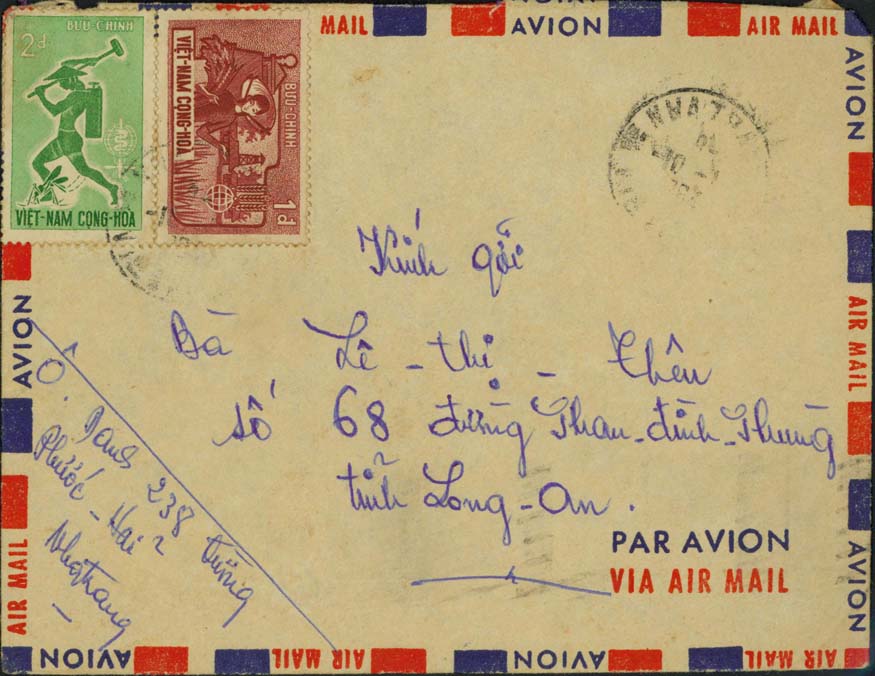 BƯU-CHÍNH
2đ
VIỆT-NAM CỘNG-HÒA
VIỆT-NAM CỘNG-HÒA
BƯU-CHÍNH
1đ
MAIL
AVION
AIR MAIL
AVION
AVION
AIR MAIL
AVION
AIR MAIL
AVION
NHATRANG
Kính gởi
Bà Lê-thị-Thêu
số 68 đường Phan-đình-Phùng
tỉnh Long-An.
Ô. 238 đường
Phước-Hải
Nhatrang
PAR AVION
VIA AIR MAIL
AVION
AIR MAIL
AVION
AIR MAIL
AVION
AIR MAIL